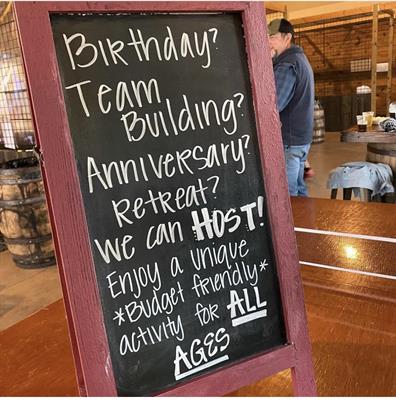 Birthday?
Team
Building?
Anniversary?
Retreat?
We can HOST!
Enjoy a unique
*Budget friendly*
activity for ALL
AGES